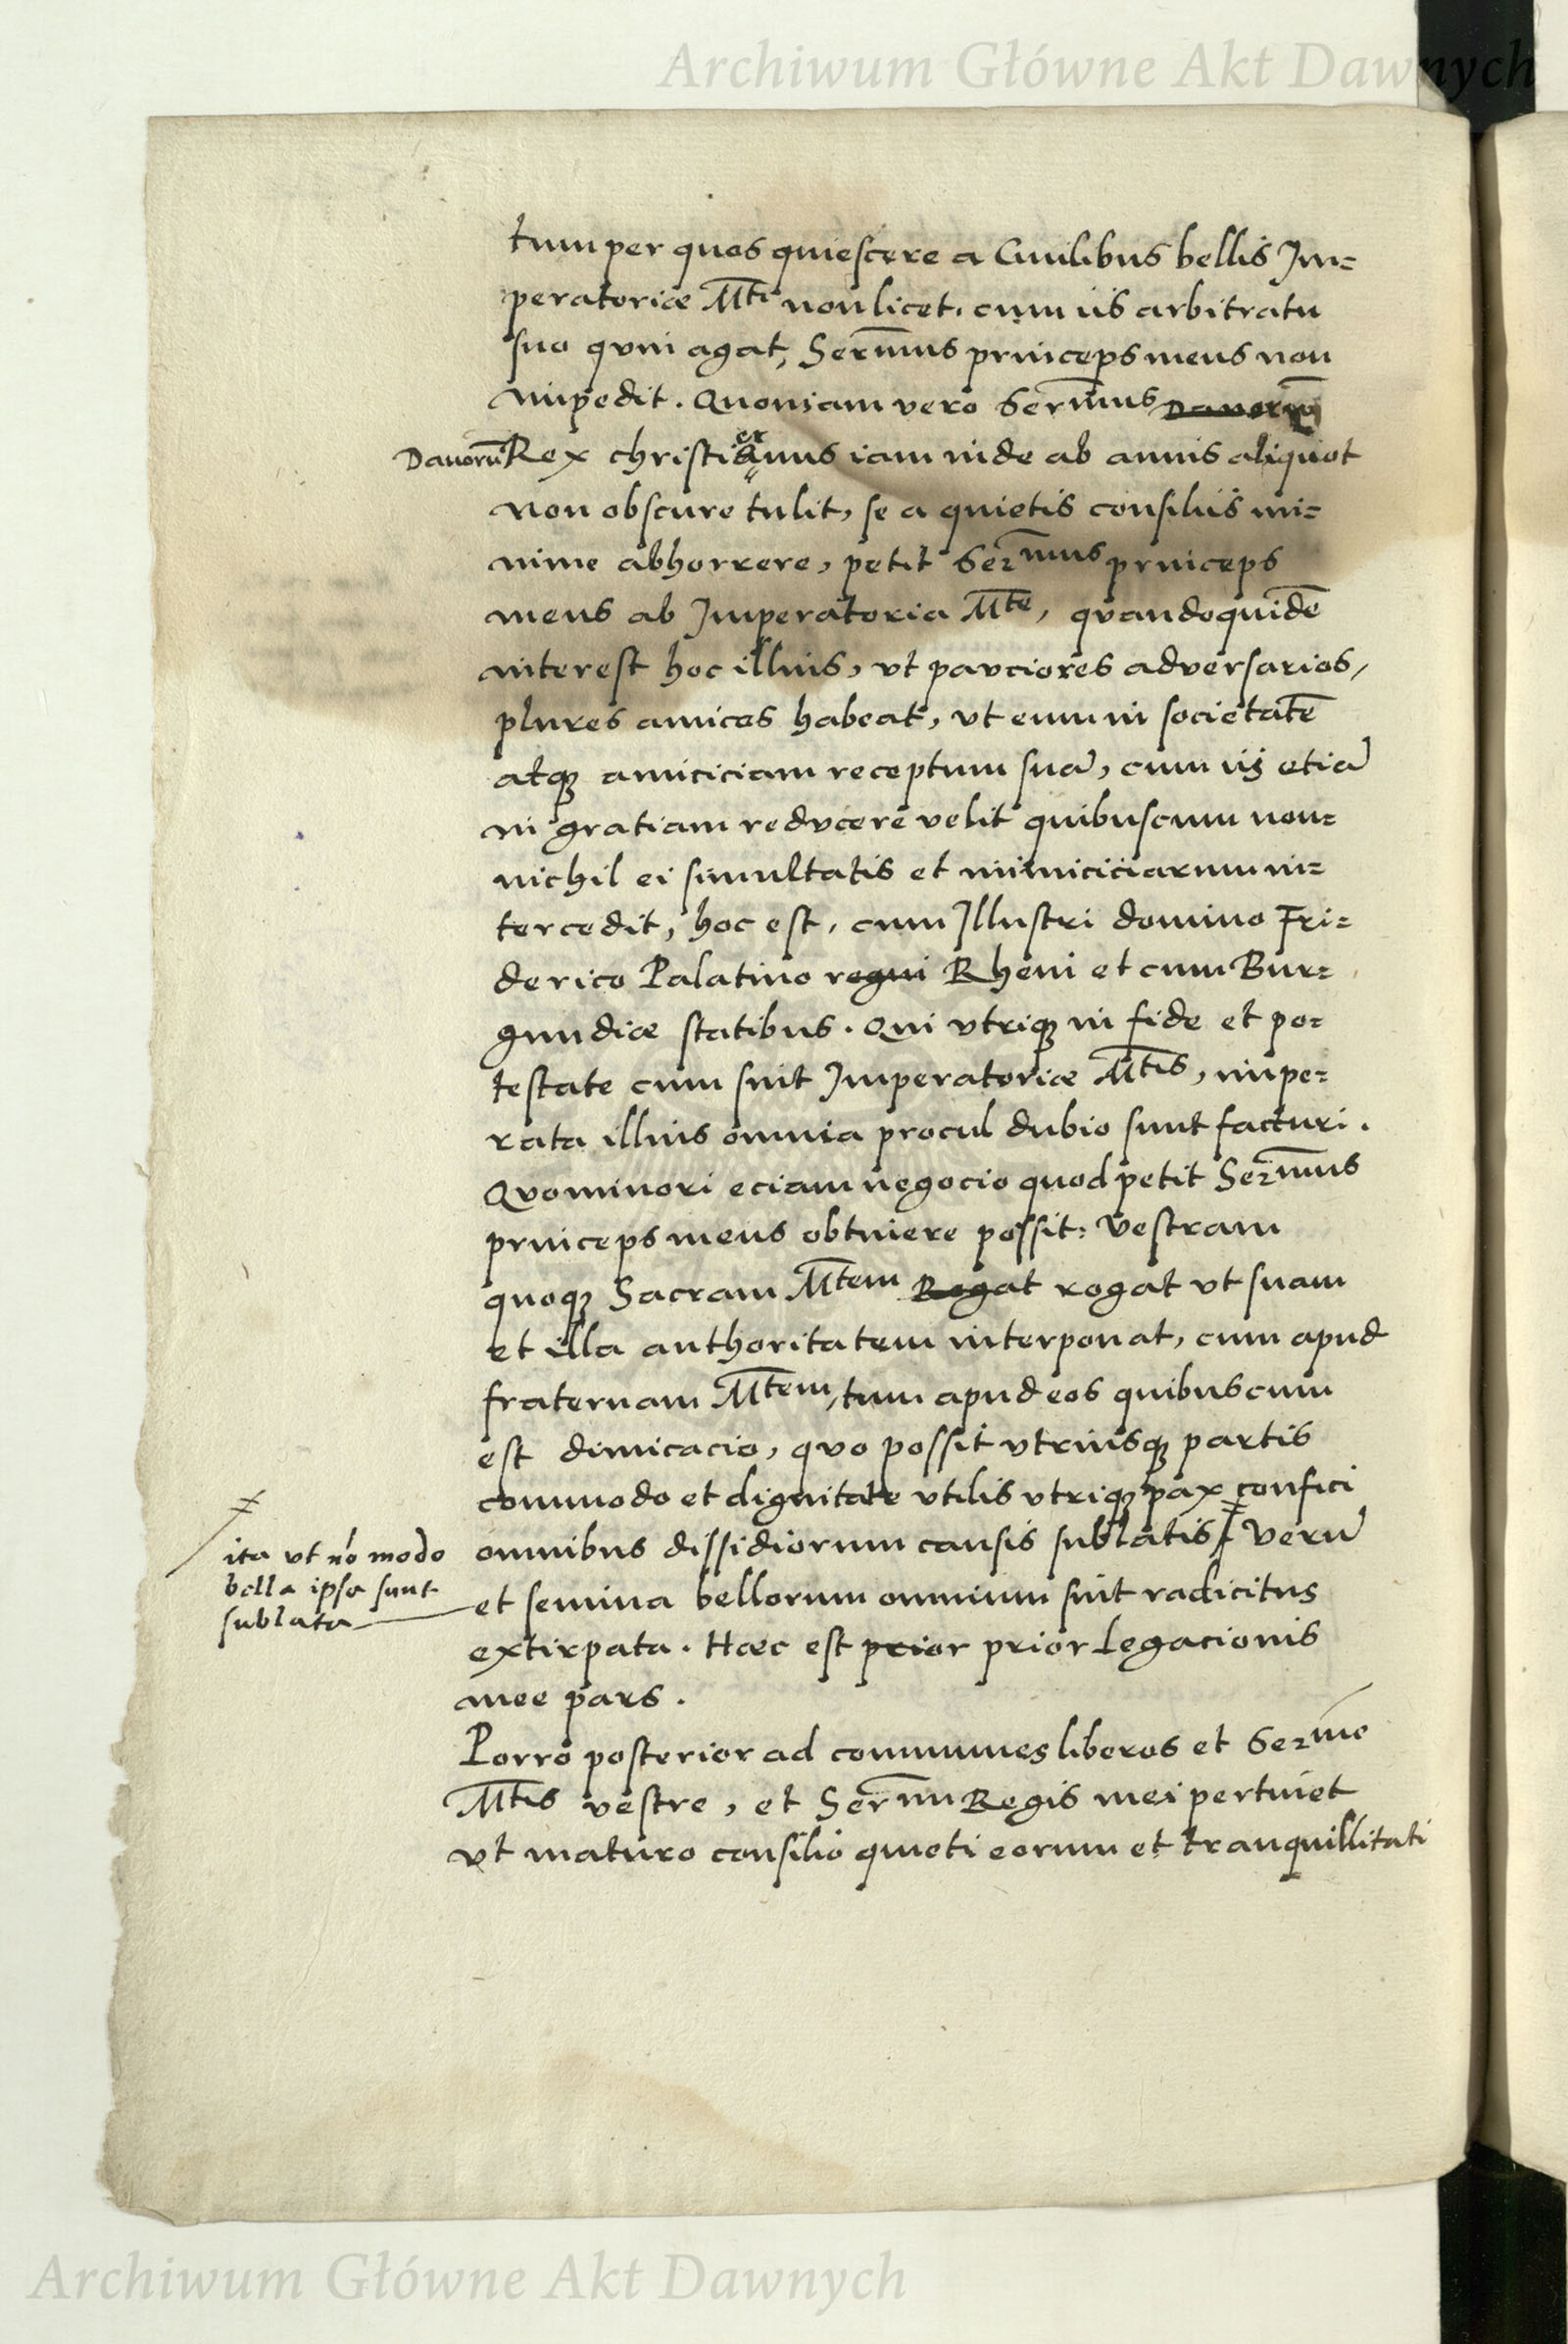 Archiwum Główne Akt Dawnych
tum per quos quiescere a Ciuilibus bellis Im=
peratoriæ Mti non licet, cum iis arbitratu
suo quin agat, Sermus princeps meus non
impedit. Quoniam vero Sermus Danorum
Danorū Rex christiernus iam inde ab annis aliquot
non obscure tulit, se a quietis consiliis mi=
nime abhorrere, petit Sermus princeps
meus ab Imperatoria Mte, quandoquidē
interest hoc illius, vt pauciores adversarios,
plures amicos habeat, vt eum in societatē
atqȝ amiciciam receptum suā, cum iis etiā
in gratiam reducere velit quibuscum non=
nichil ei simultatis et inimiciciarum in=
tercedit, hoc est, cum Illustri domino Fri=
derico Palatino regni Rheni et cum Bur=
gundiæ statibus. Qui vtriqȝ in fide et po=
testate cum sint Imperatoriæ Mtis, impe=
rata illius omnia procul dubio sunt facturi.
Quo minori eciam negocio quod petit Sermus
princeps meus obtinere possit: Vestram
quoqȝ Sacram Mtem Rogat rogat vt suam
et illa authoritatem interponat, cum apud
fraternam Mtem, tum apud eos quibuscum
est dimicacio, quo possit vtriusqȝ partis
commodo et dignitate vtilis vtriqȝ pax confici
omnibus dissidiorum causis sublatis ǂ verū
ǂ
ita vt nō modo
bella ipsa sunt
sublata
et semina bellorum omnium sint radicitus
extirpata. Hæc est prior prior Legacionis
mee pars.
Porro posterior ad communes liberos et Serme
Mtis vestre, et Sermi Regis mei pertinet
vt maturo consilio quieti eorum et tranquillitati
Archiwum Główne Akt Dawnych